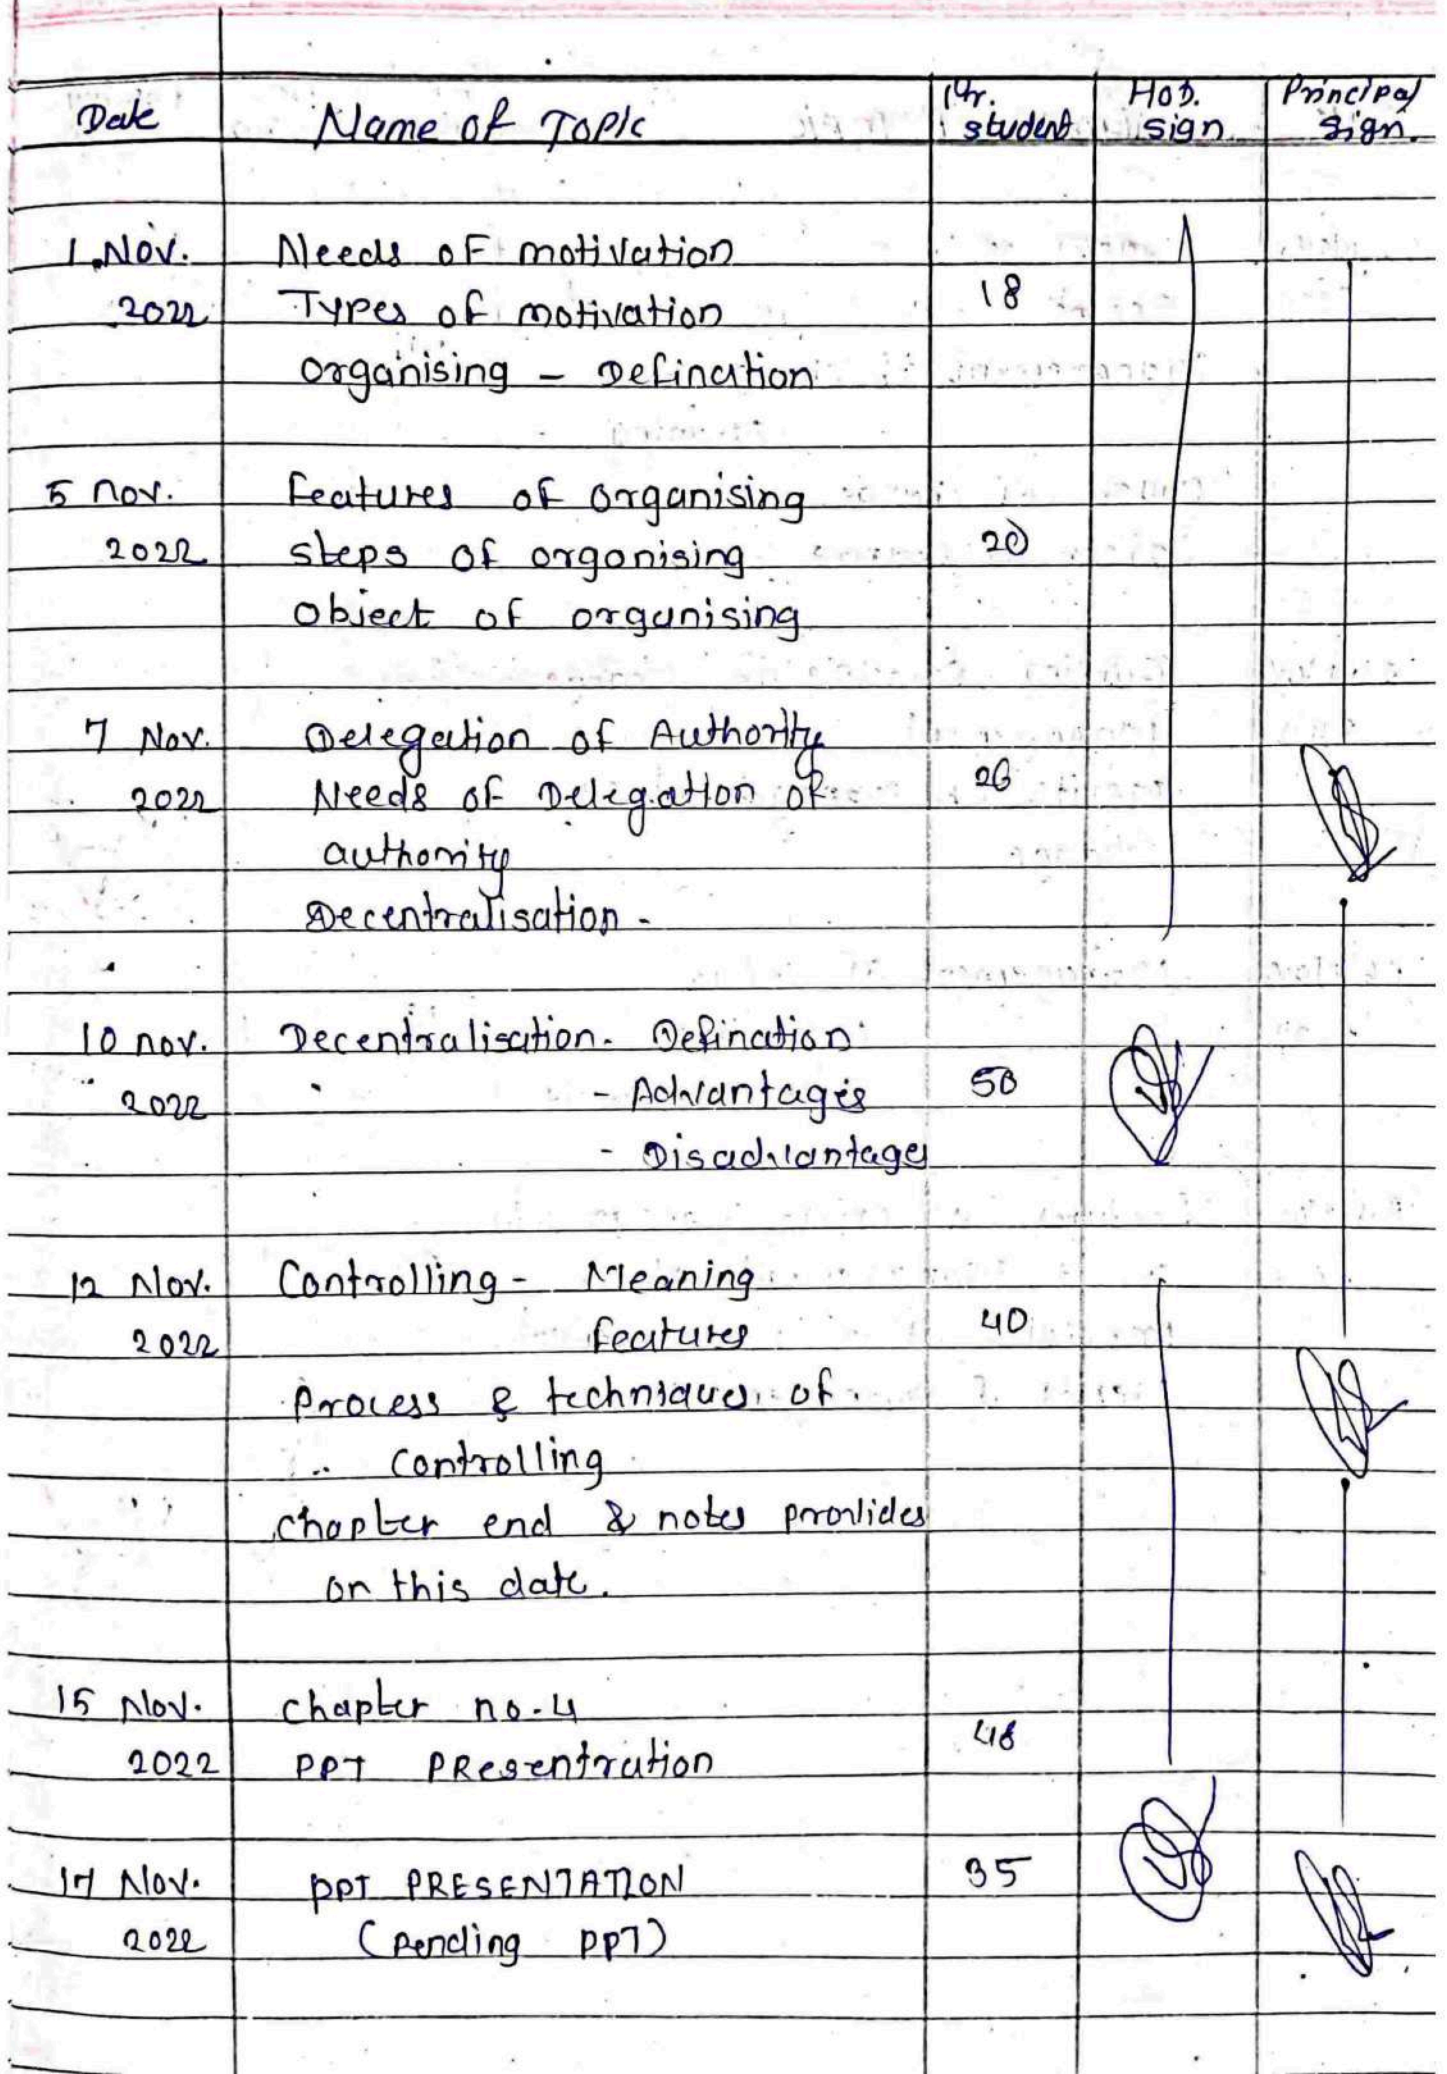 Date Name of Topic Pr. student HOD. sign Principal sign.
1. Nov. Needs of motivation
2022 Types of motivation 18
organising - Defination
5 nov. Features of organising
2022 steps of organising 20
Object of organising
7 Nov. Delegation of Authority
2022 Needs of Delegation of 26
authority
Decentralisation -
10 nov. Decentralisation - Defination
2022 - Advantages 50
- Disadvantages
12 Nov. Controlling - Meaning
2022 Features 40
Process & techniques of
controlling
chapter end & notes provides
on this date.
15 Nov. chapter no. 4
2022 PPT PResentration 48
17 Nov. PPT PRESENTATION 35
2022 (Pending PPT)